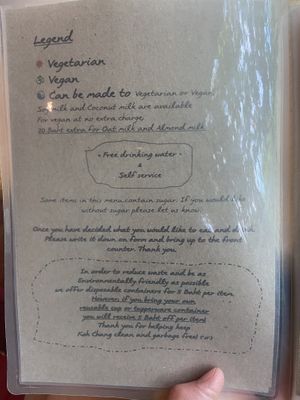 Legend
Vegetarian
Vegan
Can be made to Vegetarian or Vegan
Soy milk and Coconut milk are available
For vegan at no extra charge
20 Baht extra for Oat milk and Almond milk
• Free drinking water •
&
Self service
Some items in this menu contain sugar. If you would like
without sugar please let us know.
Once you have decided what you would like to eat and drink,
Please write it down on form and bring up to the front
counter. Thank you.
In order to reduce waste and be as
Environmentally friendly as possible
we offer disposable containers for 5 Baht per item.
However if you bring your own
reusable cup or tupperware container
you will receive 5 Baht off per item!
Thank you for helping keep
Koh Chang clean and garbage free!